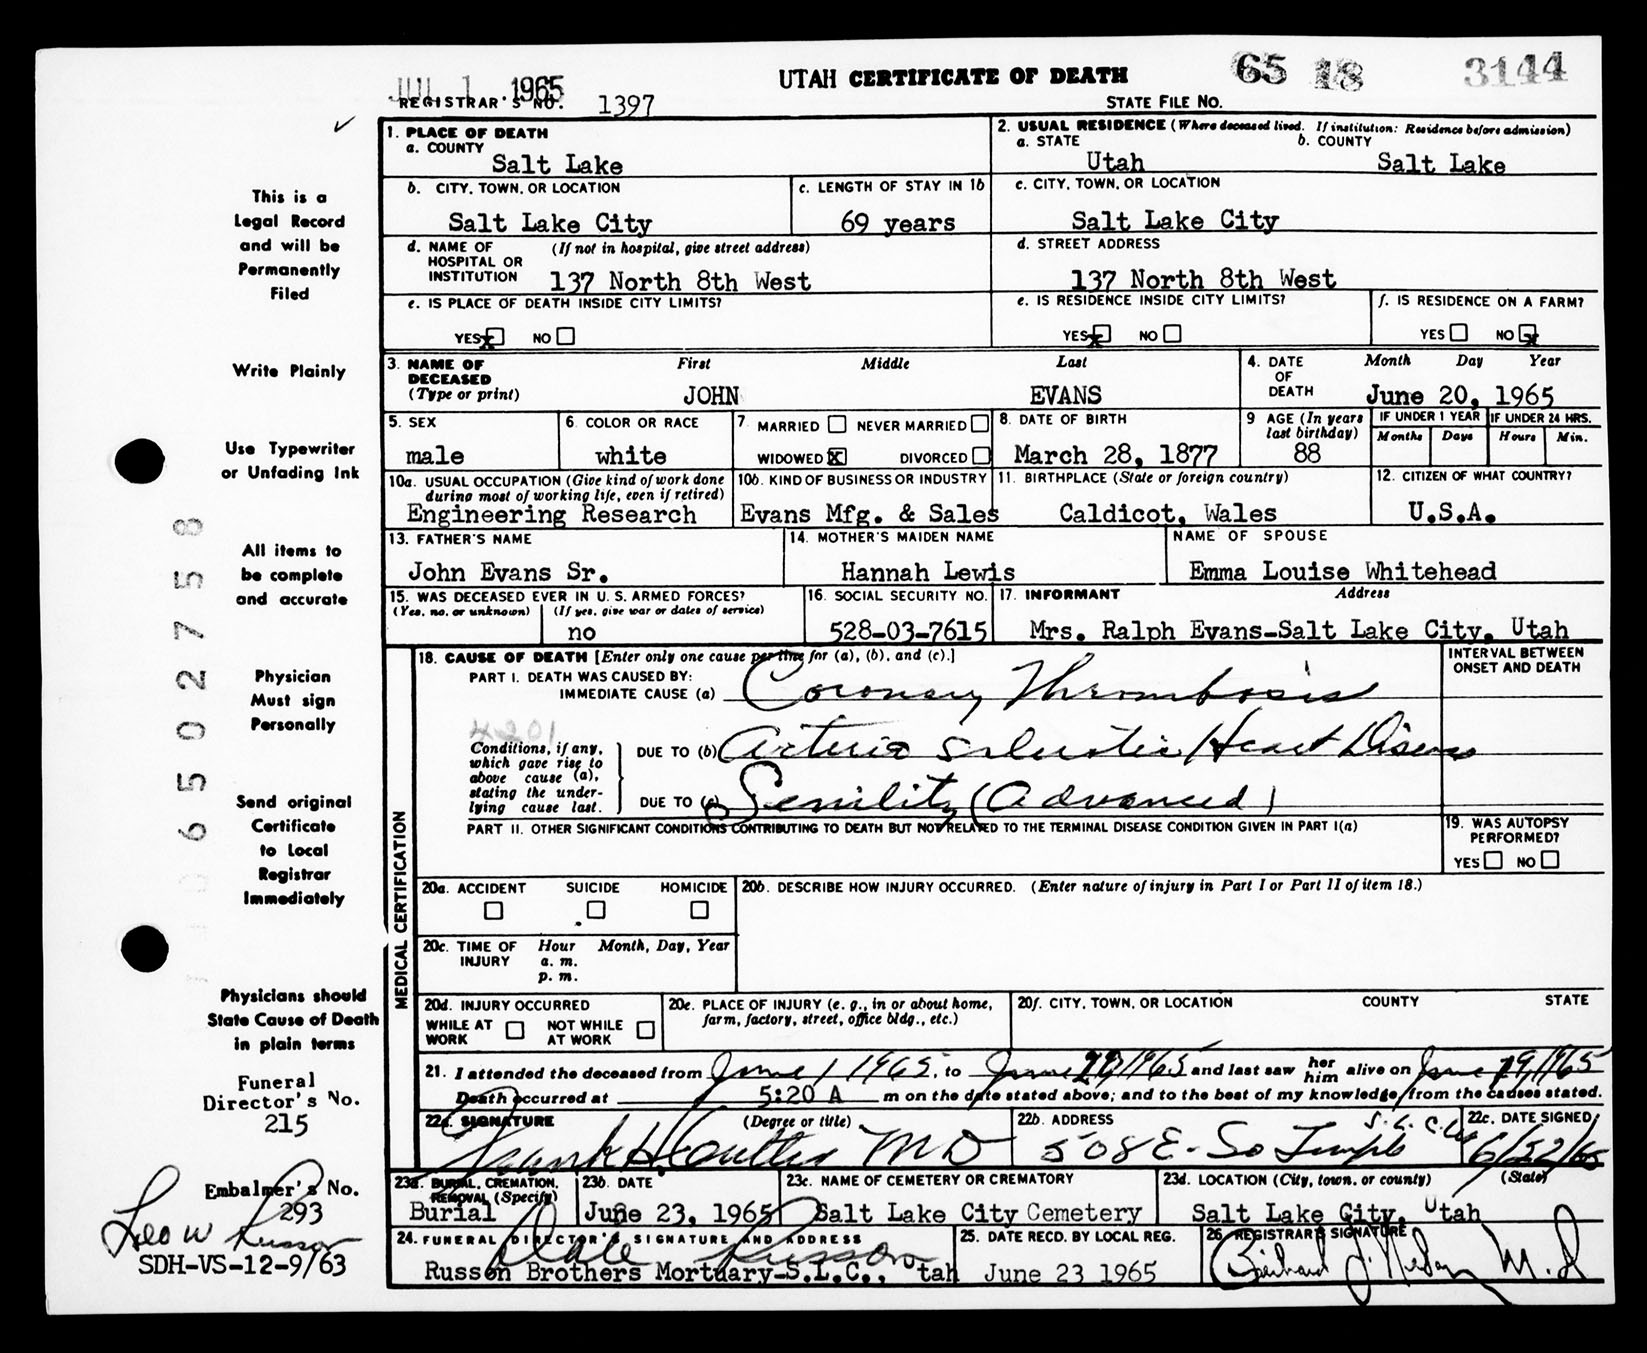 JUL 1 1965
UTAH CERTIFICATE OF DEATH
65 18 3144
REGISTRAR'S NO. 1397
STATE FILE NO.
1. PLACE OF DEATH
a. COUNTY
Salt Lake
2. USUAL RESIDENCE (Where deceased lived. If institution: Residence before admission)
a. STATE b. COUNTY
Utah Salt Lake
b. CITY, TOWN, OR LOCATION
Salt Lake City
c. LENGTH OF STAY IN 1b
69 years
c. CITY, TOWN, OR LOCATION
Salt Lake City
d. NAME OF HOSPITAL OR INSTITUTION (If not in hospital, give street address)
137 North 8th West
d. STREET ADDRESS
137 North 8th West
e. IS PLACE OF DEATH INSIDE CITY LIMITS?
YES x NO
e. IS RESIDENCE INSIDE CITY LIMITS?
YES x NO
f. IS RESIDENCE ON A FARM?
YES NO x
3. NAME OF DECEASED (Type or print)
First Middle Last
JOHN EVANS
4. DATE OF DEATH
Month Day Year
June 20, 1965
5. SEX
male
6. COLOR OR RACE
white
7. MARRIED NEVER MARRIED
WIDOWED X DIVORCED
8. DATE OF BIRTH
March 28, 1877
9 AGE (In years last birthday)
88
IF UNDER 1 YEAR
Months Days
IF UNDER 24 HRS.
Hours Min.
10a. USUAL OCCUPATION (Give kind of work done during most of working life, even if retired)
Engineering Research
10b. KIND OF BUSINESS OR INDUSTRY
Evans Mfg. & Sales
11. BIRTHPLACE (State or foreign country)
Caldicot, Wales
12. CITIZEN OF WHAT COUNTRY?
U.S.A.
13. FATHER'S NAME
John Evans Sr.
14. MOTHER'S MAIDEN NAME
Hannah Lewis
NAME OF SPOUSE
Emma Louise Whitehead
15. WAS DECEASED EVER IN U.S. ARMED FORCES?
(Yes, no, or unknown) (If yes, give war or dates of service)
no
16. SOCIAL SECURITY NO.
528-03-7615
17. INFORMANT Address
Mrs. Ralph Evans-Salt Lake City, Utah
MEDICAL CERTIFICATION
18. CAUSE OF DEATH [Enter only one cause per line for (a), (b), and (c).]
PART I. DEATH WAS CAUSED BY:
IMMEDIATE CAUSE (a) Coronary Thrombosis
INTERVAL BETWEEN ONSET AND DEATH
4201
Conditions, if any, which gave rise to above cause (a), stating the underlying cause last.
DUE TO (b) Arterio Sclerotic Heart Disease
DUE TO (c) Senility (Advanced)
PART II. OTHER SIGNIFICANT CONDITIONS CONTRIBUTING TO DEATH BUT NOT RELATED TO THE TERMINAL DISEASE CONDITION GIVEN IN PART I(a)
19. WAS AUTOPSY PERFORMED?
YES NO
20a. ACCIDENT SUICIDE HOMICIDE
20b. DESCRIBE HOW INJURY OCCURRED. (Enter nature of injury in Part I or Part II of item 18.)
20c. TIME OF INJURY Hour Month, Day, Year
a. m.
p. m.
20d. INJURY OCCURRED
WHILE AT WORK NOT WHILE AT WORK
20e. PLACE OF INJURY (e. g., in or about home, farm, factory, street, office bldg., etc.)
20f. CITY, TOWN, OR LOCATION COUNTY STATE
21. I attended the deceased from June 1 1965, to June 1965 and last saw her him alive on June 19, 1965
Death occurred at 5:20 A m on the date stated above; and to the best of my knowledge, from the causes stated.
22a. SIGNATURE (Degree or title)
Frank H. MD
22b. ADDRESS
508 E. So Temple S. L. C.
22c. DATE SIGNED
6/22/65
23a. BURIAL, CREMATION, REMOVAL (Specify)
Burial
23b. DATE
June 23, 1965
23c. NAME OF CEMETERY OR CREMATORY
Salt Lake City Cemetery
23d. LOCATION (City, town, or county) (State)
Salt Lake City, Utah
24. FUNERAL DIRECTOR'S SIGNATURE AND ADDRESS
Dale Russon
Russon Brothers Mortuary-S.L.C., tah
25. DATE RECD. BY LOCAL REG.
June 23 1965
26. REGISTRAR'S SIGNATURE
M.D
This is a
Legal Record
and will be
Permanently
Filed
Write Plainly
Use Typewriter
or Unfading Ink
All items to
be complete
and accurate
Physician
Must sign
Personally
Send original
Certificate
to Local
Registrar
Immediately
Physicians should
State Cause of Death
in plain terms
Funeral
Director's No.
215
Embalmer's No.
293
Leo W Russon
SDH-VS-12-9/63
0650275 8